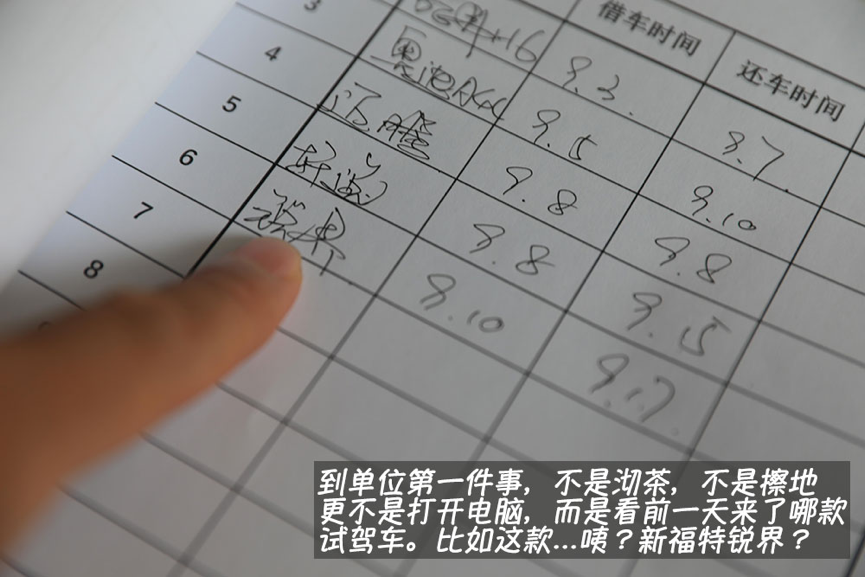 借车时间 还车时间
3 +16 9.3. 9.7.
4 9.5 9.10
5 迈腾 9.8 9.8
6 9.8 9.15
7 锐界 9.10 9.17.
8
到单位第一件事，不是沏茶，不是擦地
更不是打开电脑，而是看前一天来了哪款
试驾车。比如这款...咦？新福特锐界？